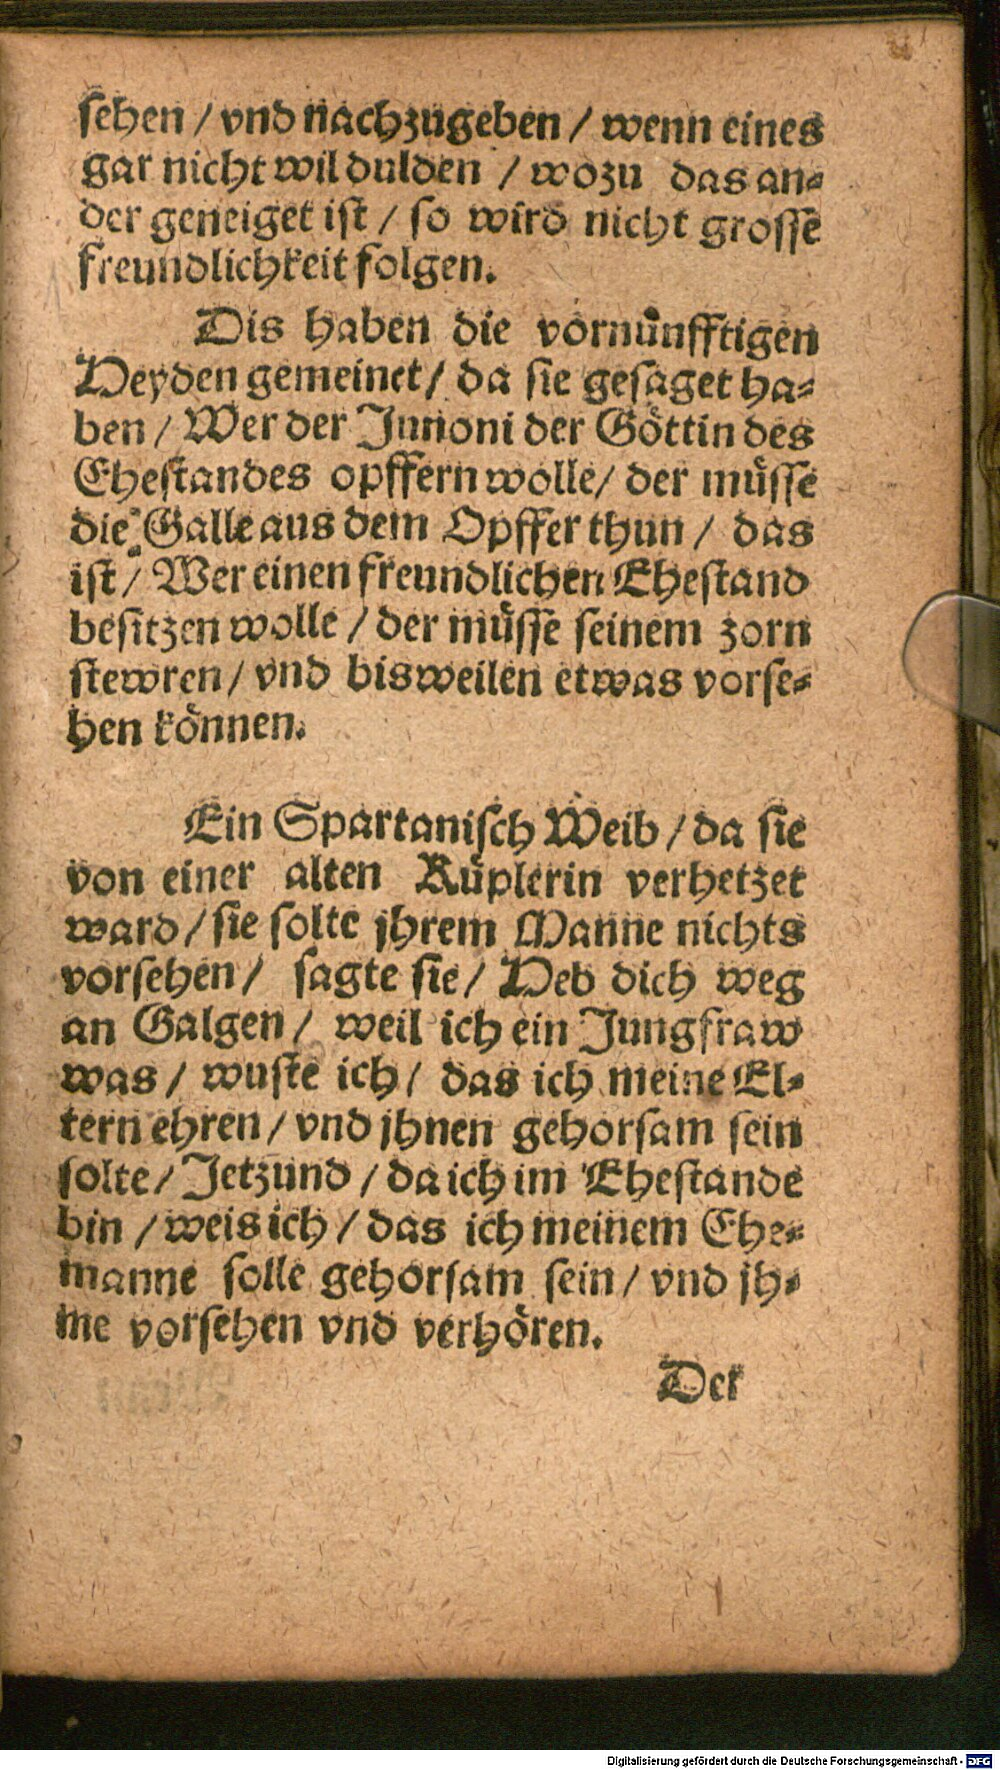 sehen / vnd nachzugeben / wenn eines
gar nicht wil dulden / wozu das an⸗
der geneiget ist / so wird nicht grosse
freundlichkeit folgen.
Dis haben die vornůnfftigen
Heyden gemeinet / da sie gesaget ha⸗
ben / Wer der Junoni der Göttin des
Ehestandes opffern wolle / der müsse
die Galle aus dem Opffer thun / das
ist / Wer einen freundlichen Ehestand
besitzen wolle / der müsse seinem zorn
stewren / vnd bisweilen etwas vorse⸗
hen können.
Ein Spartanisch Weib / da sie
von einer alten Küplerin verhetzet
ward / sie solte jhrem Manne nichts
vorsehen / sagte sie / Heb dich weg
an Galgen / weil ich ein Jungfraw
was / wuste ich / das ich meine El⸗
tern ehren / vnd jhnen gehorsam sein
solte / Jetzund / da ich im Ehestande
bin / weis ich / das ich meinem Ehe⸗
manne solle gehorsam sein / vnd jh⸗
me vorsehen vnd verhören.
Der
Digitalisierung gefördert durch die Deutsche Forschungsgemeinschaft - DFG